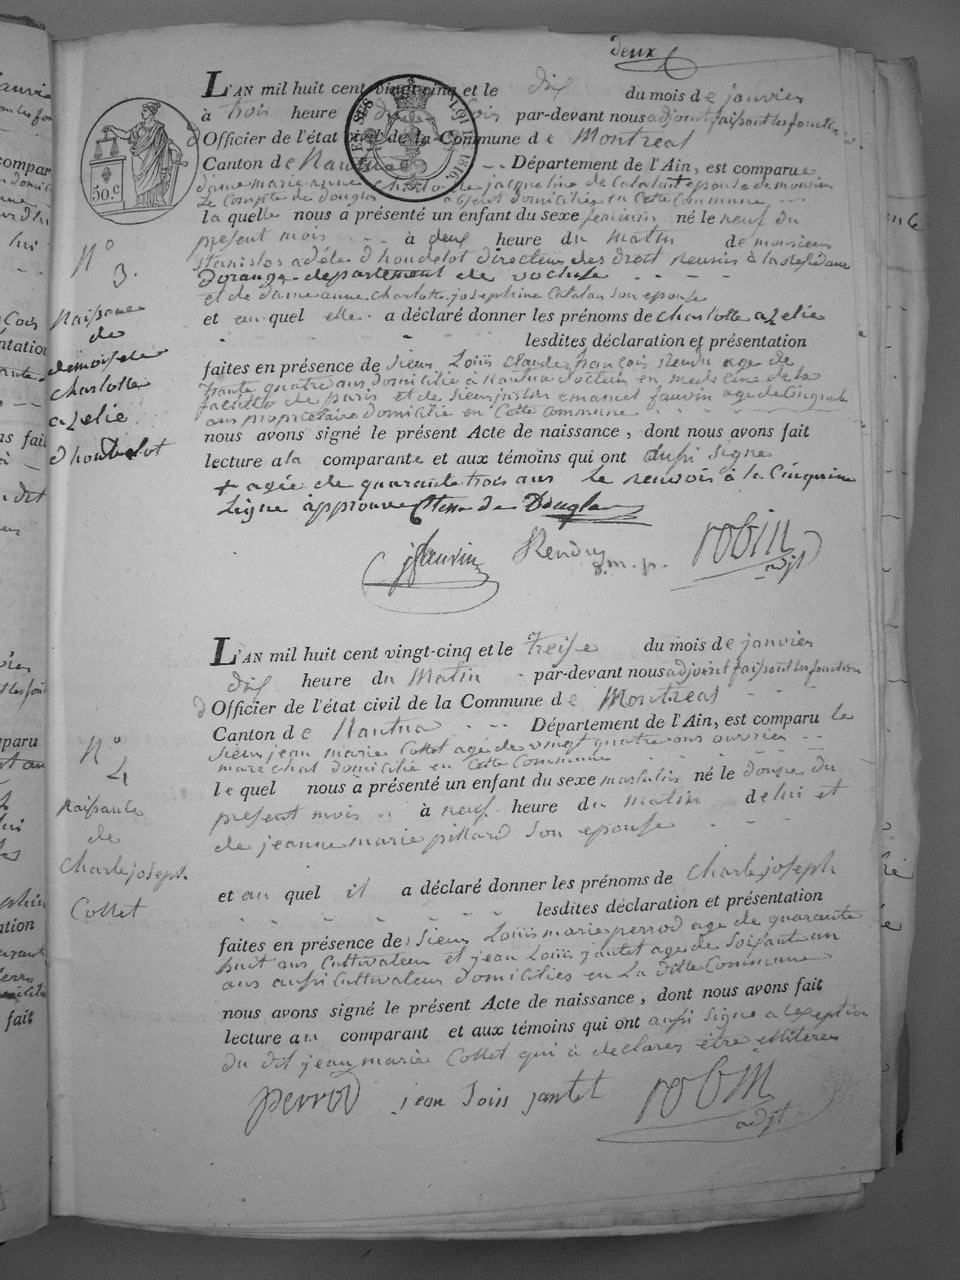 deux
L'AN mil huit cent vingt-cinq et le dix du mois de janvier
à trois heure par-devant nous adjoint faissant les fonction
d'Officier de l'état civil de la Commune de Montreal
Canton de Nantua Département de l'Ain, est comparue
dame marie reine Charlotte jacqueline de Catalant epouse de monsieur
Le Compte de Douglas domiciliée en Cette Commune
la quelle nous a présenté un enfant du sexe feminin né le neuf du
present mois à deux heure du matin de monsieur
stanislas adéle d'houdetot directeur des droit reunis à la residance
D'orange departement de vocluse
et de dame anne Charlotte josephine Catalan son epouse
et au quel elle a déclaré donner les prénoms de Charlotte azelie
lesdites déclaration et présentation
faites en présence de sieur Loüis claude françois Rendu age de
trante quatre ans domicilié à Nantua docteur en medecine de la
faculté de paris et de sieur emanuel fauvin age de Cinquante
ans propriétaire domicilié en Cette Commune
nous avons signé le présent Acte de naissance, dont nous avons fait
lecture a la comparante et aux témoins qui ont aussi signe
+ agée de quarante trois ans Le renvois à la Cinquieme
Ligne approuvé Ctesse de Douglas
jfauvin Rendu d.m.p. robin adjt
N° 3.
Naissance
de
demoiselle
Charlotte
azelie
d'houdetot
50.c
L'AN mil huit cent vingt-cinq et le treise du mois de janvier
dix heure du Matin par-devant nous adjoint faissant les fonction
d'Officier de l'état civil de la Commune de Montreal
Canton de Nantua Département de l'Ain, est comparu le
sieur jean marie Collet agé de vingt quatre ans ouvrier
maréchal domicilié en Cette Commune
le quel nous a présenté un enfant du sexe masculin né le douse du
present mois à neuf heure du matin de lui et
de jeanne marie pillard son epouse
et au quel il a déclaré donner les prénoms de Charle joseph
lesdites déclaration et présentation
faites en présence de sieur Loüis marie perrod age de quarante
huit ans Cultivateur et jean Loüis jantet age de soisante un
ans aussi Cultivateur domicilies en La ditte Commune
nous avons signé le présent Acte de naissance, dont nous avons fait
lecture au comparant et aux témoins qui ont aussi signe a lexeption
du dit jean marie Collet qui à declares être illiteres
perrod jean Loiis jantet robin adjt
N° 4
Naissance
de
Charle joseph
Collet